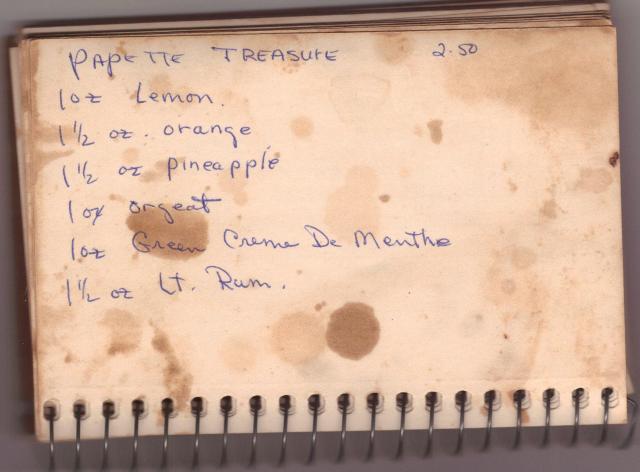 PAPETTE TREASURE 2.50
1oz Lemon.
1 1/2 oz. orange
1 1/2 oz pineapple
1oz orgeat
1oz Green Creme De Menthe
1 1/2 oz Lt. Rum.